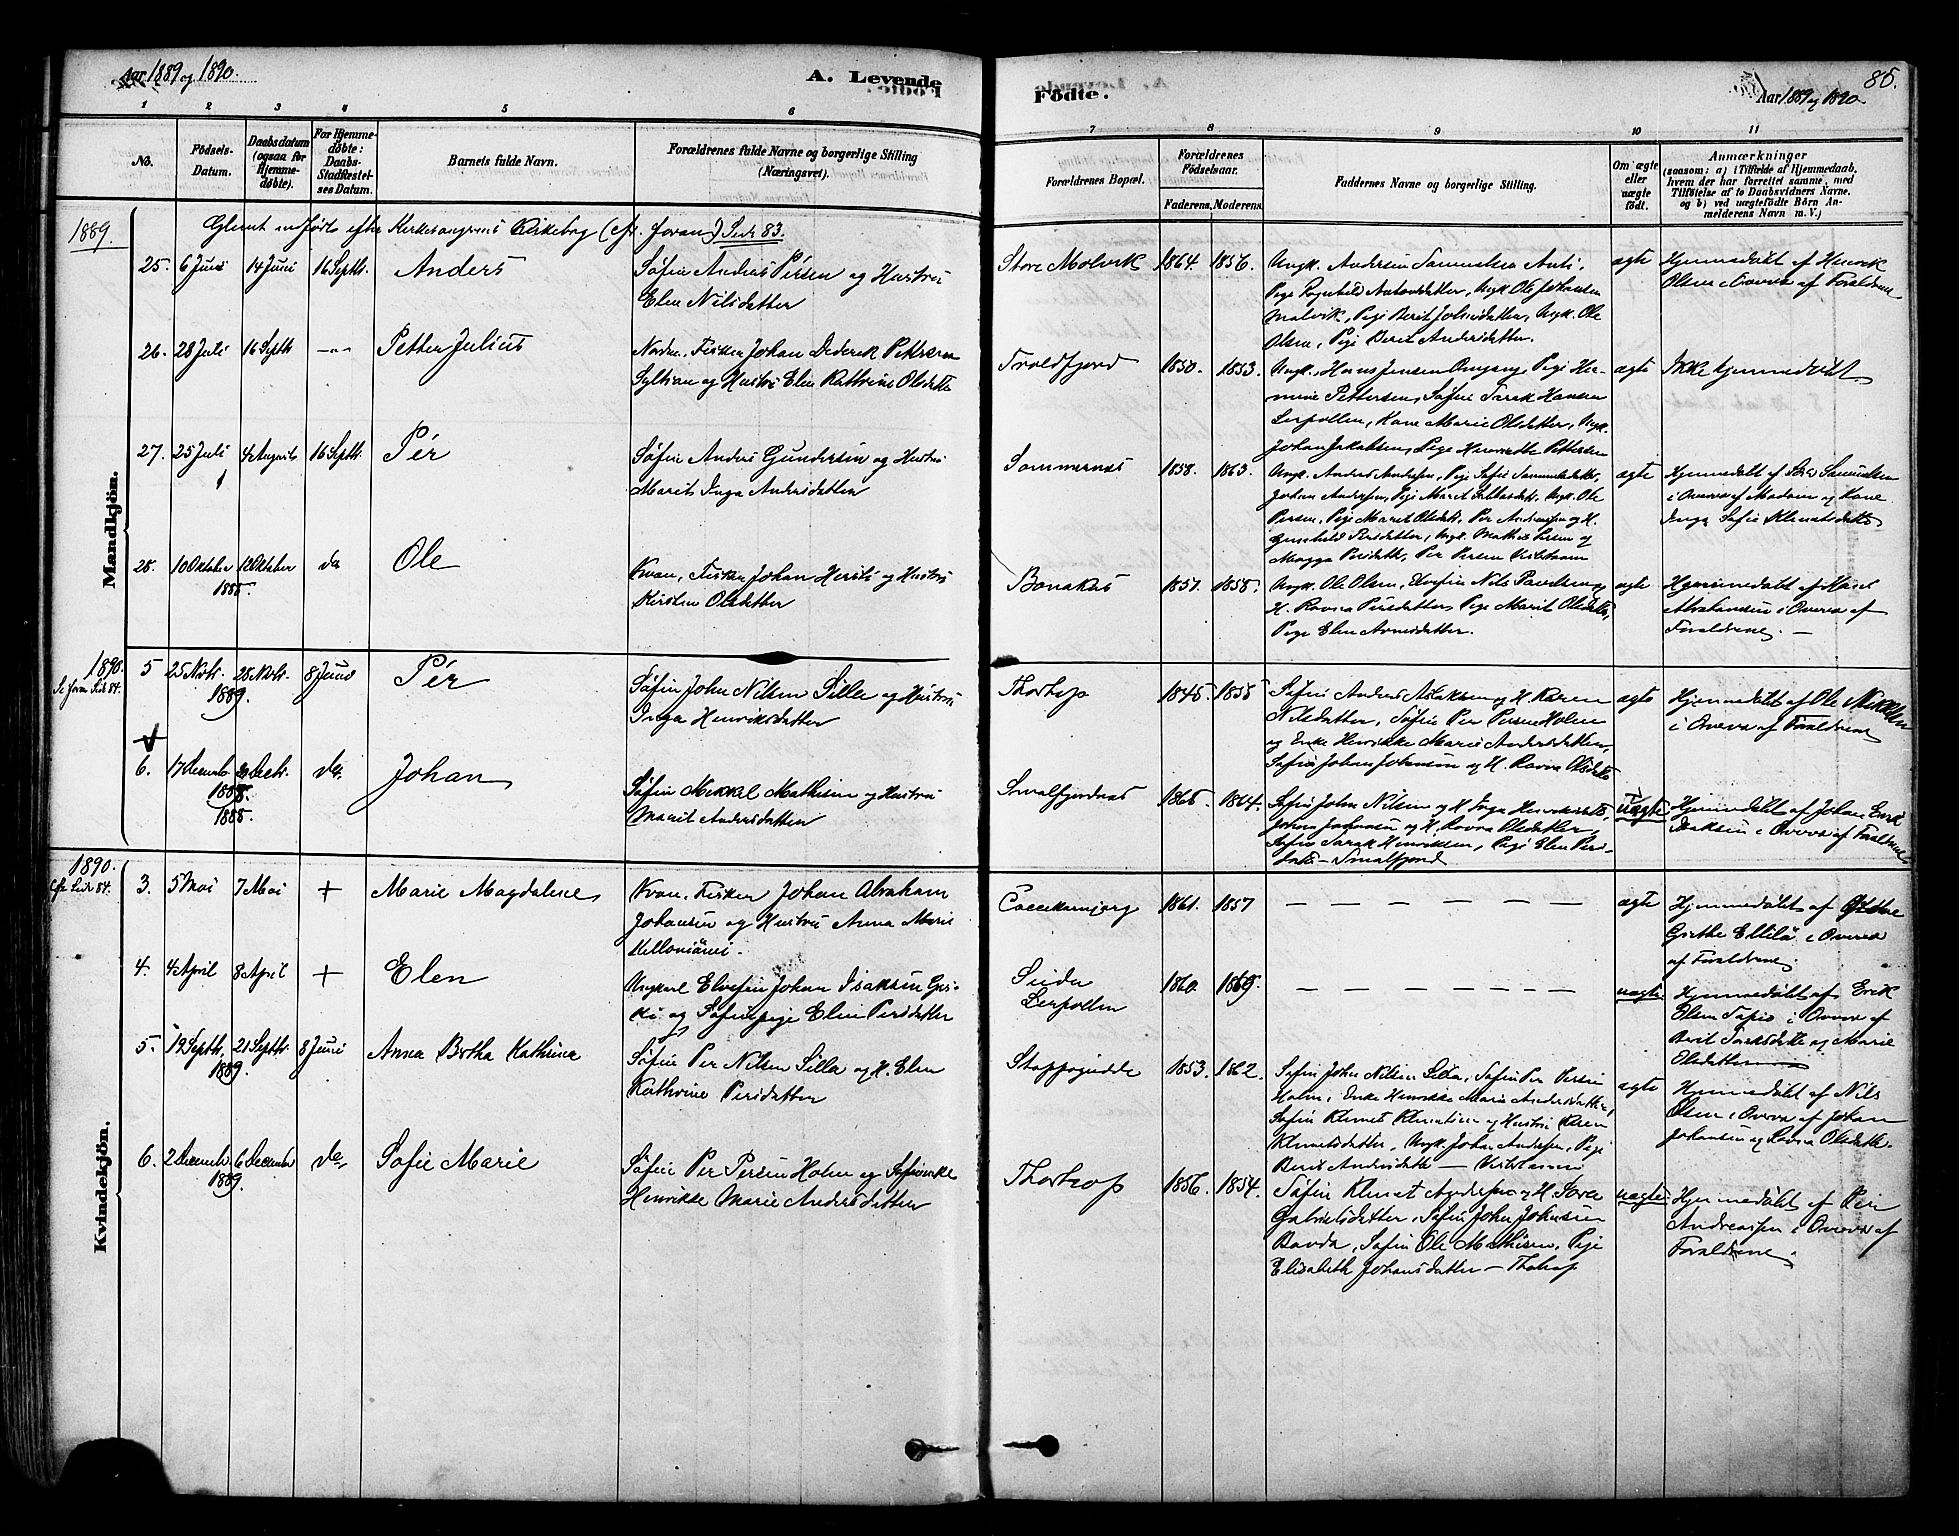 Aar 1889 og 1890.
A. Levende
Fødte.
Aar 1889 og 1890.
85.
1 2 3 4 5 6
7 8 9 10 11
No.
Fødsels-
Datum.
Daabsdatum
(ogsaa for
Hjemme-
døbte).
For Hjemme-
døbte:
Daabs-
Stadfæstel-
ses Datum.
Barnets fulde Navn.
Forældrenes fulde Navne og borgerlige Stilling
(Næringsvei).
Forældrenes Bopæl.
Forældrenes
Fødselsaar.
Faderens. Moderens.
Faddernes Navne og borgerlige Stilling.
Om ægte
eller
uægte
født.
Anmærkninger
(saasom: a) i Tilfælde af Hjemmedaab,
hvem der har forrettet samme, med
Tilføielse af to Daabsvidners Navne,
og b) ved uægtefødte Børn An-
melderens Navn m. V.)
1889.
Glemt indført efter Kirkesangerens Kirkebog (cfr. foran) Side 83.
Mandkjön.
25. 6 Juni 14 Juni 16 Septbr. Anders
Søfin Andras Persen og Hustru
Elen Nilsdatter
Store Molvik 1864. 1856.
Ungk. Andersen Samuelsen Anti,
Pige Ragnhild Antonsdatter, Ungk Ole Johansen
Malvik, Pige Berit Johnsdatter, Ungk. Ole
Olsen, Pige Berit Andersdatter.
ægte
Hjemmedøbt af Henrik
Olsen i Overv af Forældrene
26. 28 Juli 16 Septb -"- Petter Julius
Nordm. Fisker Johan Dederik Pettersen
og Hustru Elen Kathrine Olsdatte
Troldfjord 1850. 1853.
Ungk. Hans Jensen Omgang, Pige Her-
mine Pettersen, Søfin Tarak Hansen
Leirpollen, Kone Marie Olsdatter, Ungk.
Johan Jakobsen, Pige Henrette Pettersen
ægte
Ikke hjemmedøbt
27. 25 Juli 4 August 16 Septb. Pér
Søfin Anders Gundersen og Hustru
Marit Inga Andersdatter
Sommernes 1858. 1863.
Ungk. Andras Andersen, Pige Sofie Sammelsdatte,
Johan Andersen, Pige Marit Ungk. Ole
Persen, Pige Marit Olsdatte, Per Andreassen og H.
Persdatter, Ungk. Mathis og
Magga Persdatte, Per Persen Vestertanen
ægte
Hjemmedøbt af Samuelsen
i Overv af Moderen og Kone
Inga Sofie Klemetsdatte
28. 10 Oktober 12 Oktober do Ole
1888.
Kvæn, Fisker Johan og Hustru
Kirsten Olsdatter
Bonakas 1857. 1858.
Ungk. Ole Olsen, Elvefin Nils Paulsen og
H. Ravna Persdatter, Pige Marit Olsdatte,
Pige Elen Arnesdatter.
ægte
Hjemmedøbt af
Abrahamsen i Overv af
Forældrene. —
1890.
Se foran Side 84.
5 25 Novbr. 28 Novbr. 8 Juni Pér
1889.
Søfin John Nilsen Silla og Hustru
Inga Henriksdatter
Thorhop 1845. 1855
Søfin Andras Aslaksen og H. Karen
Nilsdatter, Søfin Per Persen Holm
og Enke Henrikke Marie Andersdatter,
Søfin Johan Johansen og H. Ravna Olsdatte
ægte
Hjemmedøbt af Ole Mikkelsen
i Overv af Forældrene
6. 17 Decemb Decbr. do. Johan
1888.
1888.
Søfin Mikkel Mathisen og Hustru
Marit Andersdatter
Smalfjordnes 1865. 1864.
Søfin John Nilsen og H. Inga Henriksdatte,
Johan Johansen og H. Ravna Olsdatter
Søfin Tarak Henriksen, Pige Elen Pers-
datte — Smalfjord
uægte
Hjemmedøbt af Johan Erik
Isaksen i Overv af Forældrene
Kvindekjön.
1890.
Cfr Side 84.
3. 5 Mai 7 Mai + Marie Magdalene
Kvæn. Fisker Johan Abraham
Johansen og Hustru Anna Marie
1861. 1857
— — — — — — —
ægte
Hjemmedøbt af
Grethe Ellilä i Overv
af Forældrene
4. 4 April 8 April + Elen
Ungkarl Elvefin Johan Isaksen
og Søfinpige Elen Persdatter
Seida
Leirpollen
1860. 1869.
— — — — — — —
uægte
Hjemmedøbt af Erik
Olsen Tapio i Overv af
Berit Tarksdatte og Marie
Olsdatter
5. 19 Septb. 21 Septbr. 8 Juni Anna Bertha Kathrina
1889.
Søfin Per Nilsen Silla og H. Elen
Kathrine Persdatter
Stoppogiedde 1853. 1862.
Søfin John Nilsen Silla, Søfin Per Persen
Holm, Enke Henrikke Marie Andersdatter,
Søfin Klemet Klemetsen og Hustru Karen
Klemetsdatter, Ungk. Johan Andersen, Pige
Berit Andersdatte — Vestertanen
ægte
Hjemmedøbt af Nils
Olsen i Overv af Johan
Johansen og Ravna Olsdatte.
6. 2 December 6 December do. Sofie Marie
1889.
Søfin Per Persen Holm og Søfinenke
Henrikke Marie Andersdatter
Thorhop 1856. 1854.
Søfin Klemet Andersen og H. Sara
Gabrielsdatter, Søfin John Johnsen
Bavda, Søfin Ole Mathisen, Pige
Elisabeth Johansdatter — Thorhop
uægte
Hjemmedøbt af Per
Andreassen i Overv af
Forældrene.